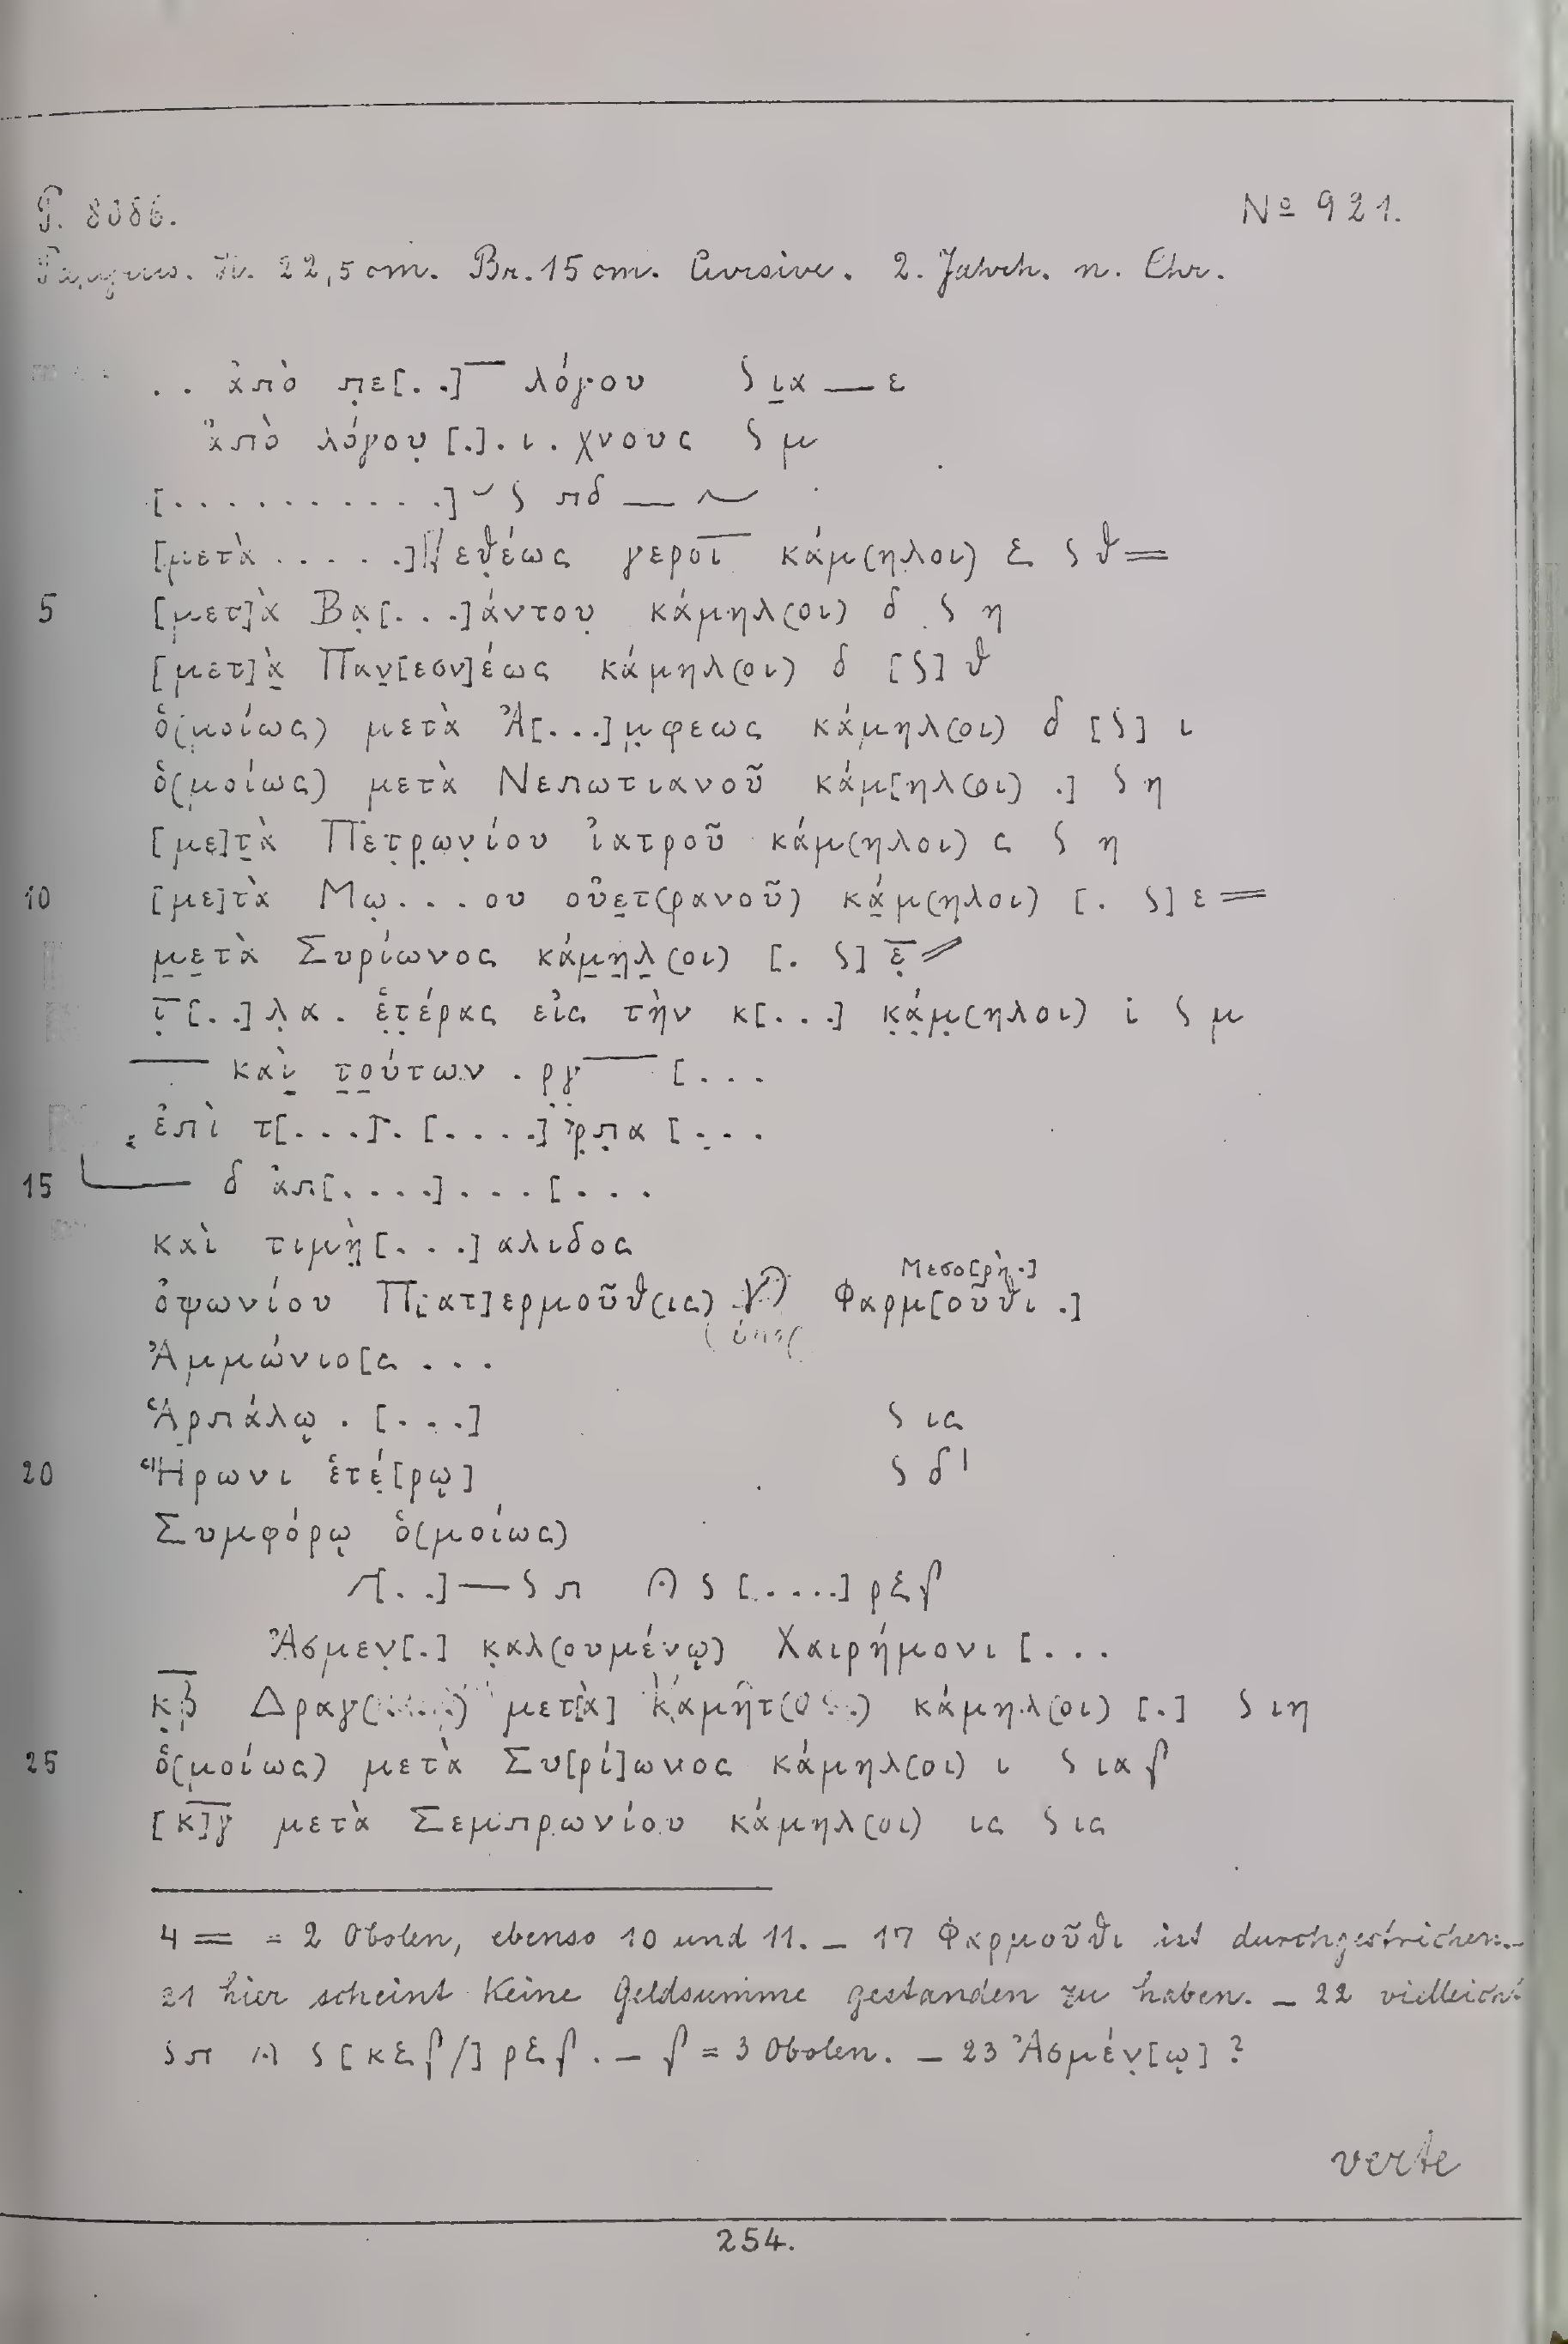 P. 8086. № 921.
22,5 cm. Br. 15 cm. Cursive. 2. Jahrh. n. Chr.
. . ἀπὸ π̣ε[. .]‾ λόγου ϛ ι̣α — ε
ἀπὸ λόγου̣ [.] . ι . χνους ϛ μ
[. . . . . . . . . . .] ˘ ϛ πδ — ~
[μετὰ . . . . .] εθ̣έως γεροῑ κάμ(ηλοι) ε ϛ θ =
5 [μετ]ὰ Βα̣[. . .]άντου̣ κάμηλ(οι) δ ϛ η
[μετ]ὰ̣ Παν̣[εσν]έως κάμηλ(οι) δ [ϛ] θ
ὁ(μοίως) μετὰ Ἀ[. . .]μ̣φεως κάμηλ(οι) δ [ϛ] ι
ὁ(μοίως) μετὰ Νεπωτιανοῦ κάμ[ηλ(οι) .] ϛ η
[με]τ̣ὰ Πετ̣ρ̣ων̣ίου ἰατροῦ κάμ(ηλοι) ς ϛ η
10 [με]τὰ Μω̣ . . . ου οὐε̣τ(ρανοῦ) κά̣μ(ηλοι) [. ϛ] ε =
μ̣ε̣τὰ Συρίωνος κάμ̣η̣λ̣(οι) [. ϛ] ε̣̄ =
τ̣̄[. .]λ̣α . ἑ̣τ̣έρας εἰς τὴν κ[. . .] κ̣ά̣μ̣(ηλοι) ι ϛ μ
— καὶ̣ τ̣ο̣ύτων . ρ̣γ̣ ‾ [. . .
ἐπὶ τ[. . .]. . [. . . .] ρ̣π̣α [. . .
15 δ ἀπ[. . . .] . . . [. . .
καὶ τιμη̣[. . .]αλιδος
Μεσο[ρὴ .]
ὀψωνίου Π[ατ]ερμοῦθ(ις) Φαρμ[οῦθι .]
Ἀμμώνιο[ς . . .
Ἁρπάλῳ . [. . .] ϛ ις
20 Ἥρωνι ἑτέ̣[ρῳ] ϛ δ'
Συμφόρῳ ὁ(μοίως)
[. .] — ϛ π ϛ [. . . .] ρξ ʃ
Ἀσμεν̣[.] κ̣αλ(ουμένῳ) Χαιρήμονι [. . .
κ̣β̄ μετ[ὰ] κάμηλ(οι) [.] ϛ ιη
25 ὁ(μοίως) μετὰ Συ[ρί]ωνος κάμηλ(οι) ι ϛ ια ʃ
[κ]γ̄ μετὰ Σεμπρωνίου κάμηλ(οι) ις ϛ ις
4 = = 2 Obolen, ebenso 10 und 11. – 17 Φαρμοῦθι ist durchgestrichen. –
21 hier scheint keine Geldsumme gestanden zu haben. – 22 vielleicht
ϛ π ϛ [κξ ʃ /] ρξ ʃ . – ʃ = 3 Obolen. – 23 Ἀσμέν̣[ῳ] ?
verte
254.